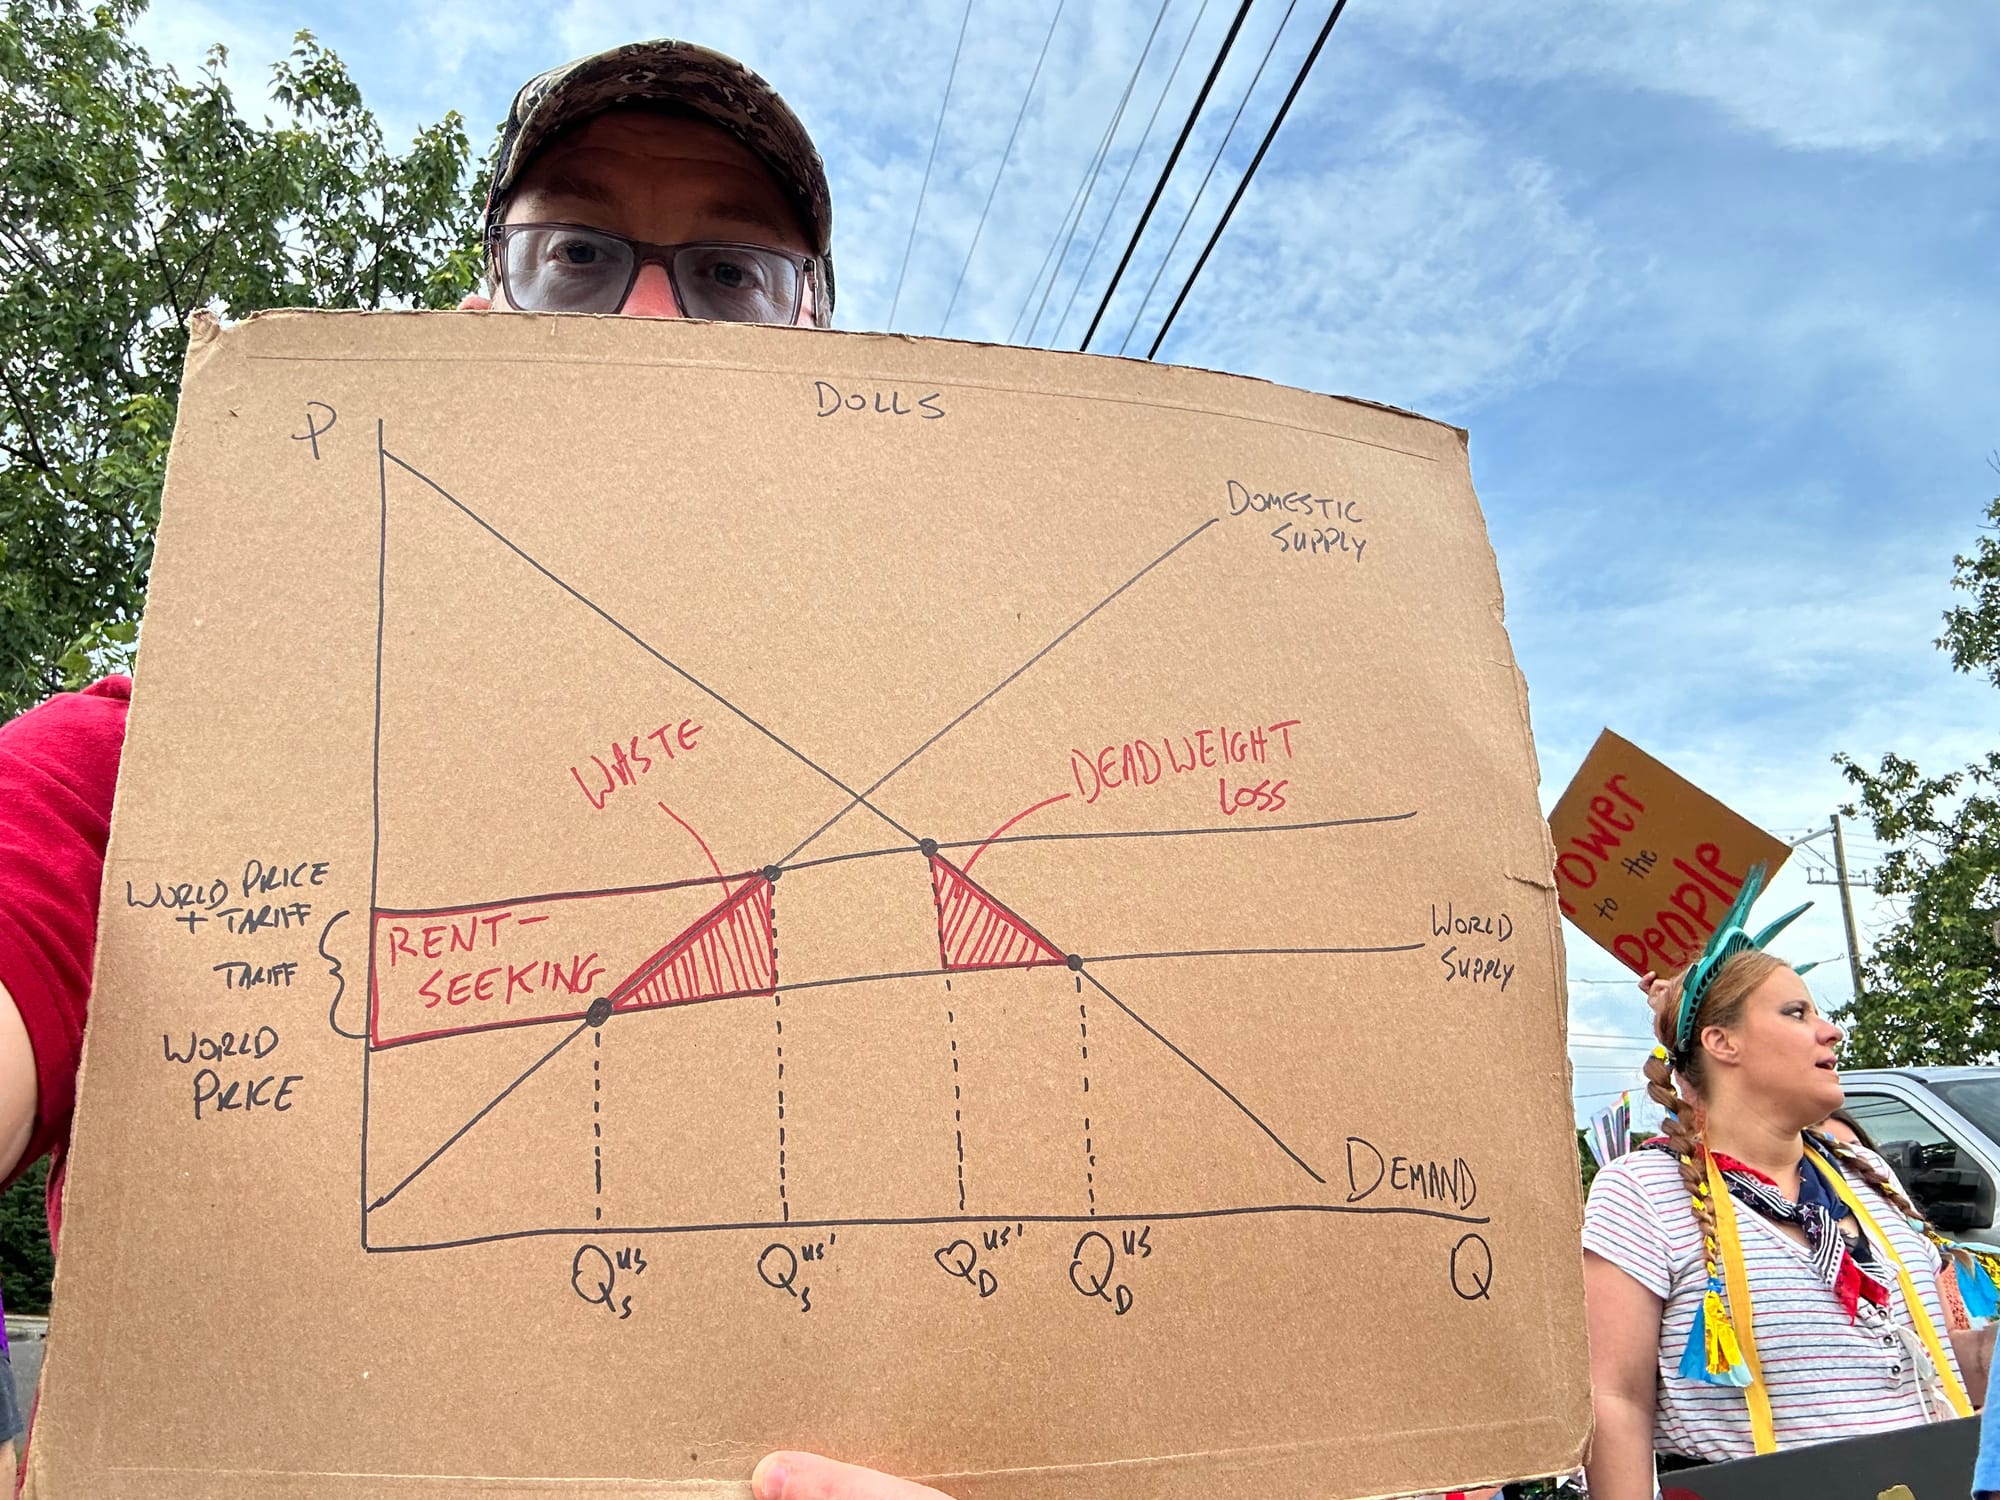 DOLLS
P
DOMESTIC
SUPPLY
WASTE
DEADWEIGHT
LOSS
WORLD PRICE
+ TARIFF
TARIFF
WORLD
PRICE
RENT-
SEEKING
WORLD
SUPPLY
DEMAND
Q
Q_S^US
Q_S^US'
Q_D^US'
Q_D^US
Power
to the
People